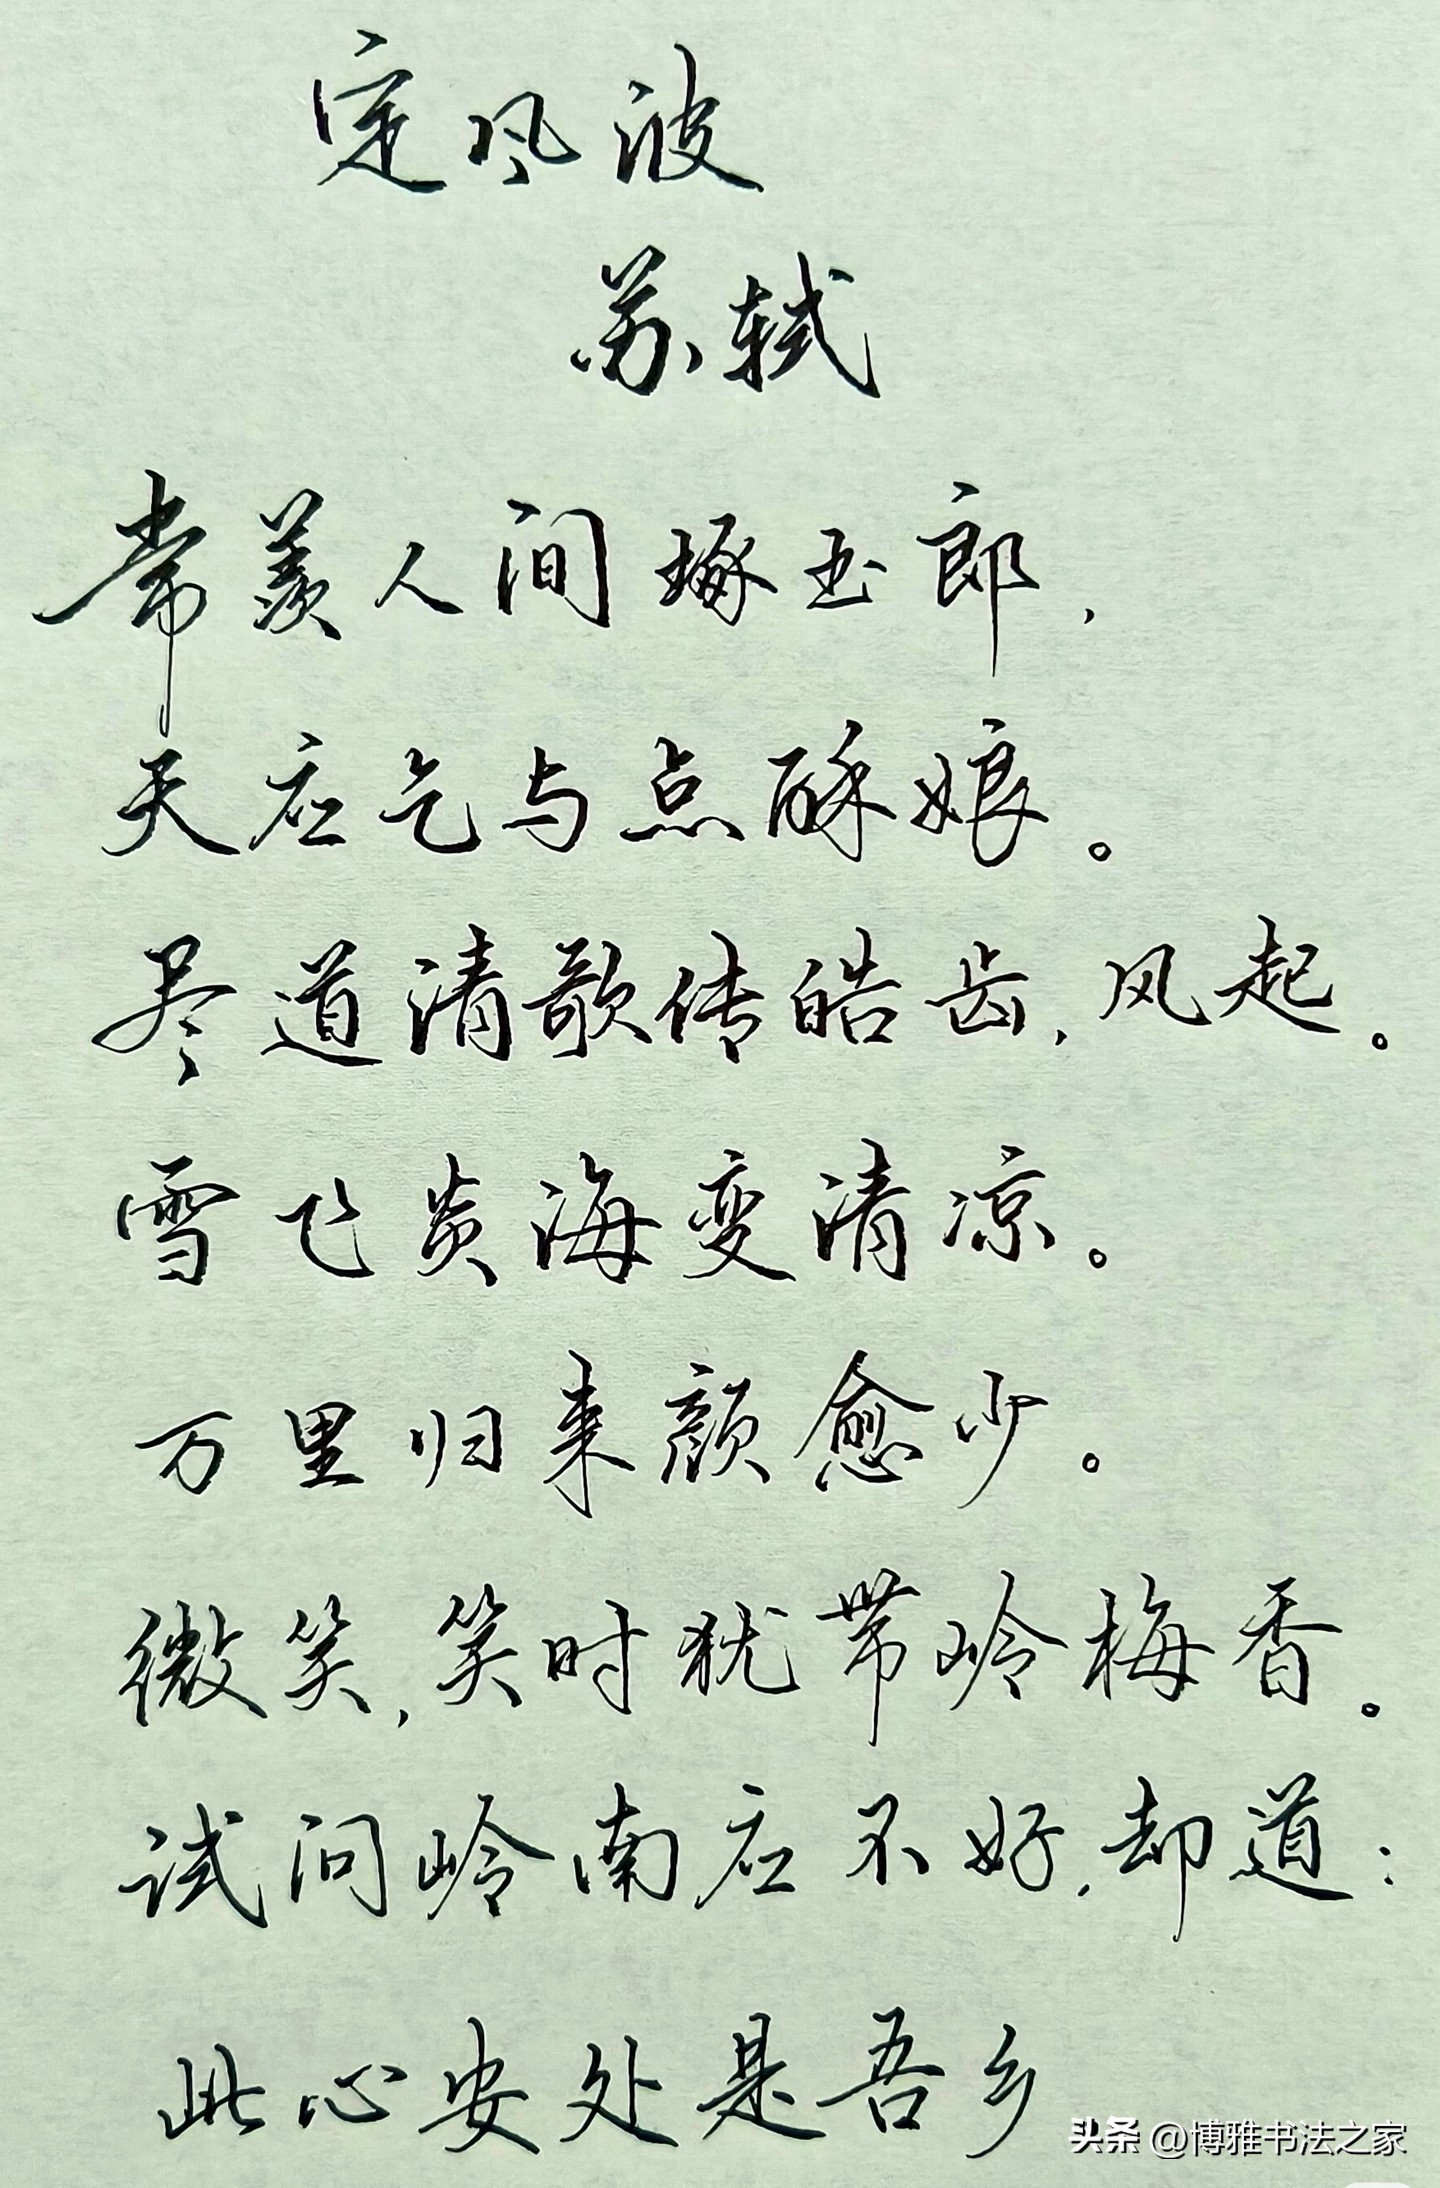 定风波
苏轼
常羡人间琢玉郎，
天应乞与点酥娘。
尽道清歌传皓齿，风起。
雪飞炎海变清凉。
万里归来颜愈少。
微笑，笑时犹带岭梅香。
试问岭南应不好，却道：
此心安处是吾乡
头条 @博雅书法之家